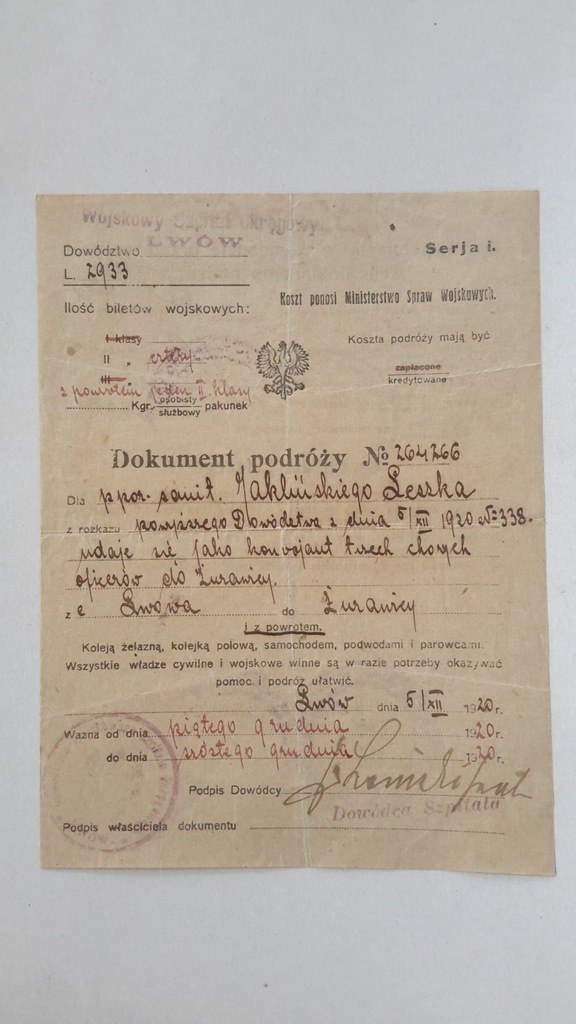 Wojskowy Szpital Okręgowy
LWÓW
Dowództwo
Serja i.
L. 2933
Koszt ponosi Ministerstwo Spraw Wojskowych.
Ilość biletów wojskowych:
I klasy
Koszta podróży mają być
II " cztery
zapłacone
III "
kredytowane
z powrotem jeden II. klasy
Kgr. osobisty służbowy pakunek
Dokument podróży № 264266
Dla ppor. sanit. Jaklińskiego Leszka
z rozkazu powyższego Dowództwa z dnia 5/XII 1920 № 338.
udaje się jako konwojant trzech chorych
oficerów do Żurawicy.
z e Lwowa do Żurawicy
i z powrotem.
Koleją żelazną, kolejką polową, samochodem, podwodami i parowcami.
Wszystkie władze cywilne i wojskowe winne są w razie potrzeby okazywać
pomoc i podróż ułatwić.
Lwów dnia 5/XII 1920 r.
Ważna od dnia piątego grudnia 1920 r.
do dnia szóstego grudnia 1920 r.
Podpis Dowódcy
Dowódca Szpitala
Podpis właściciela dokumentu